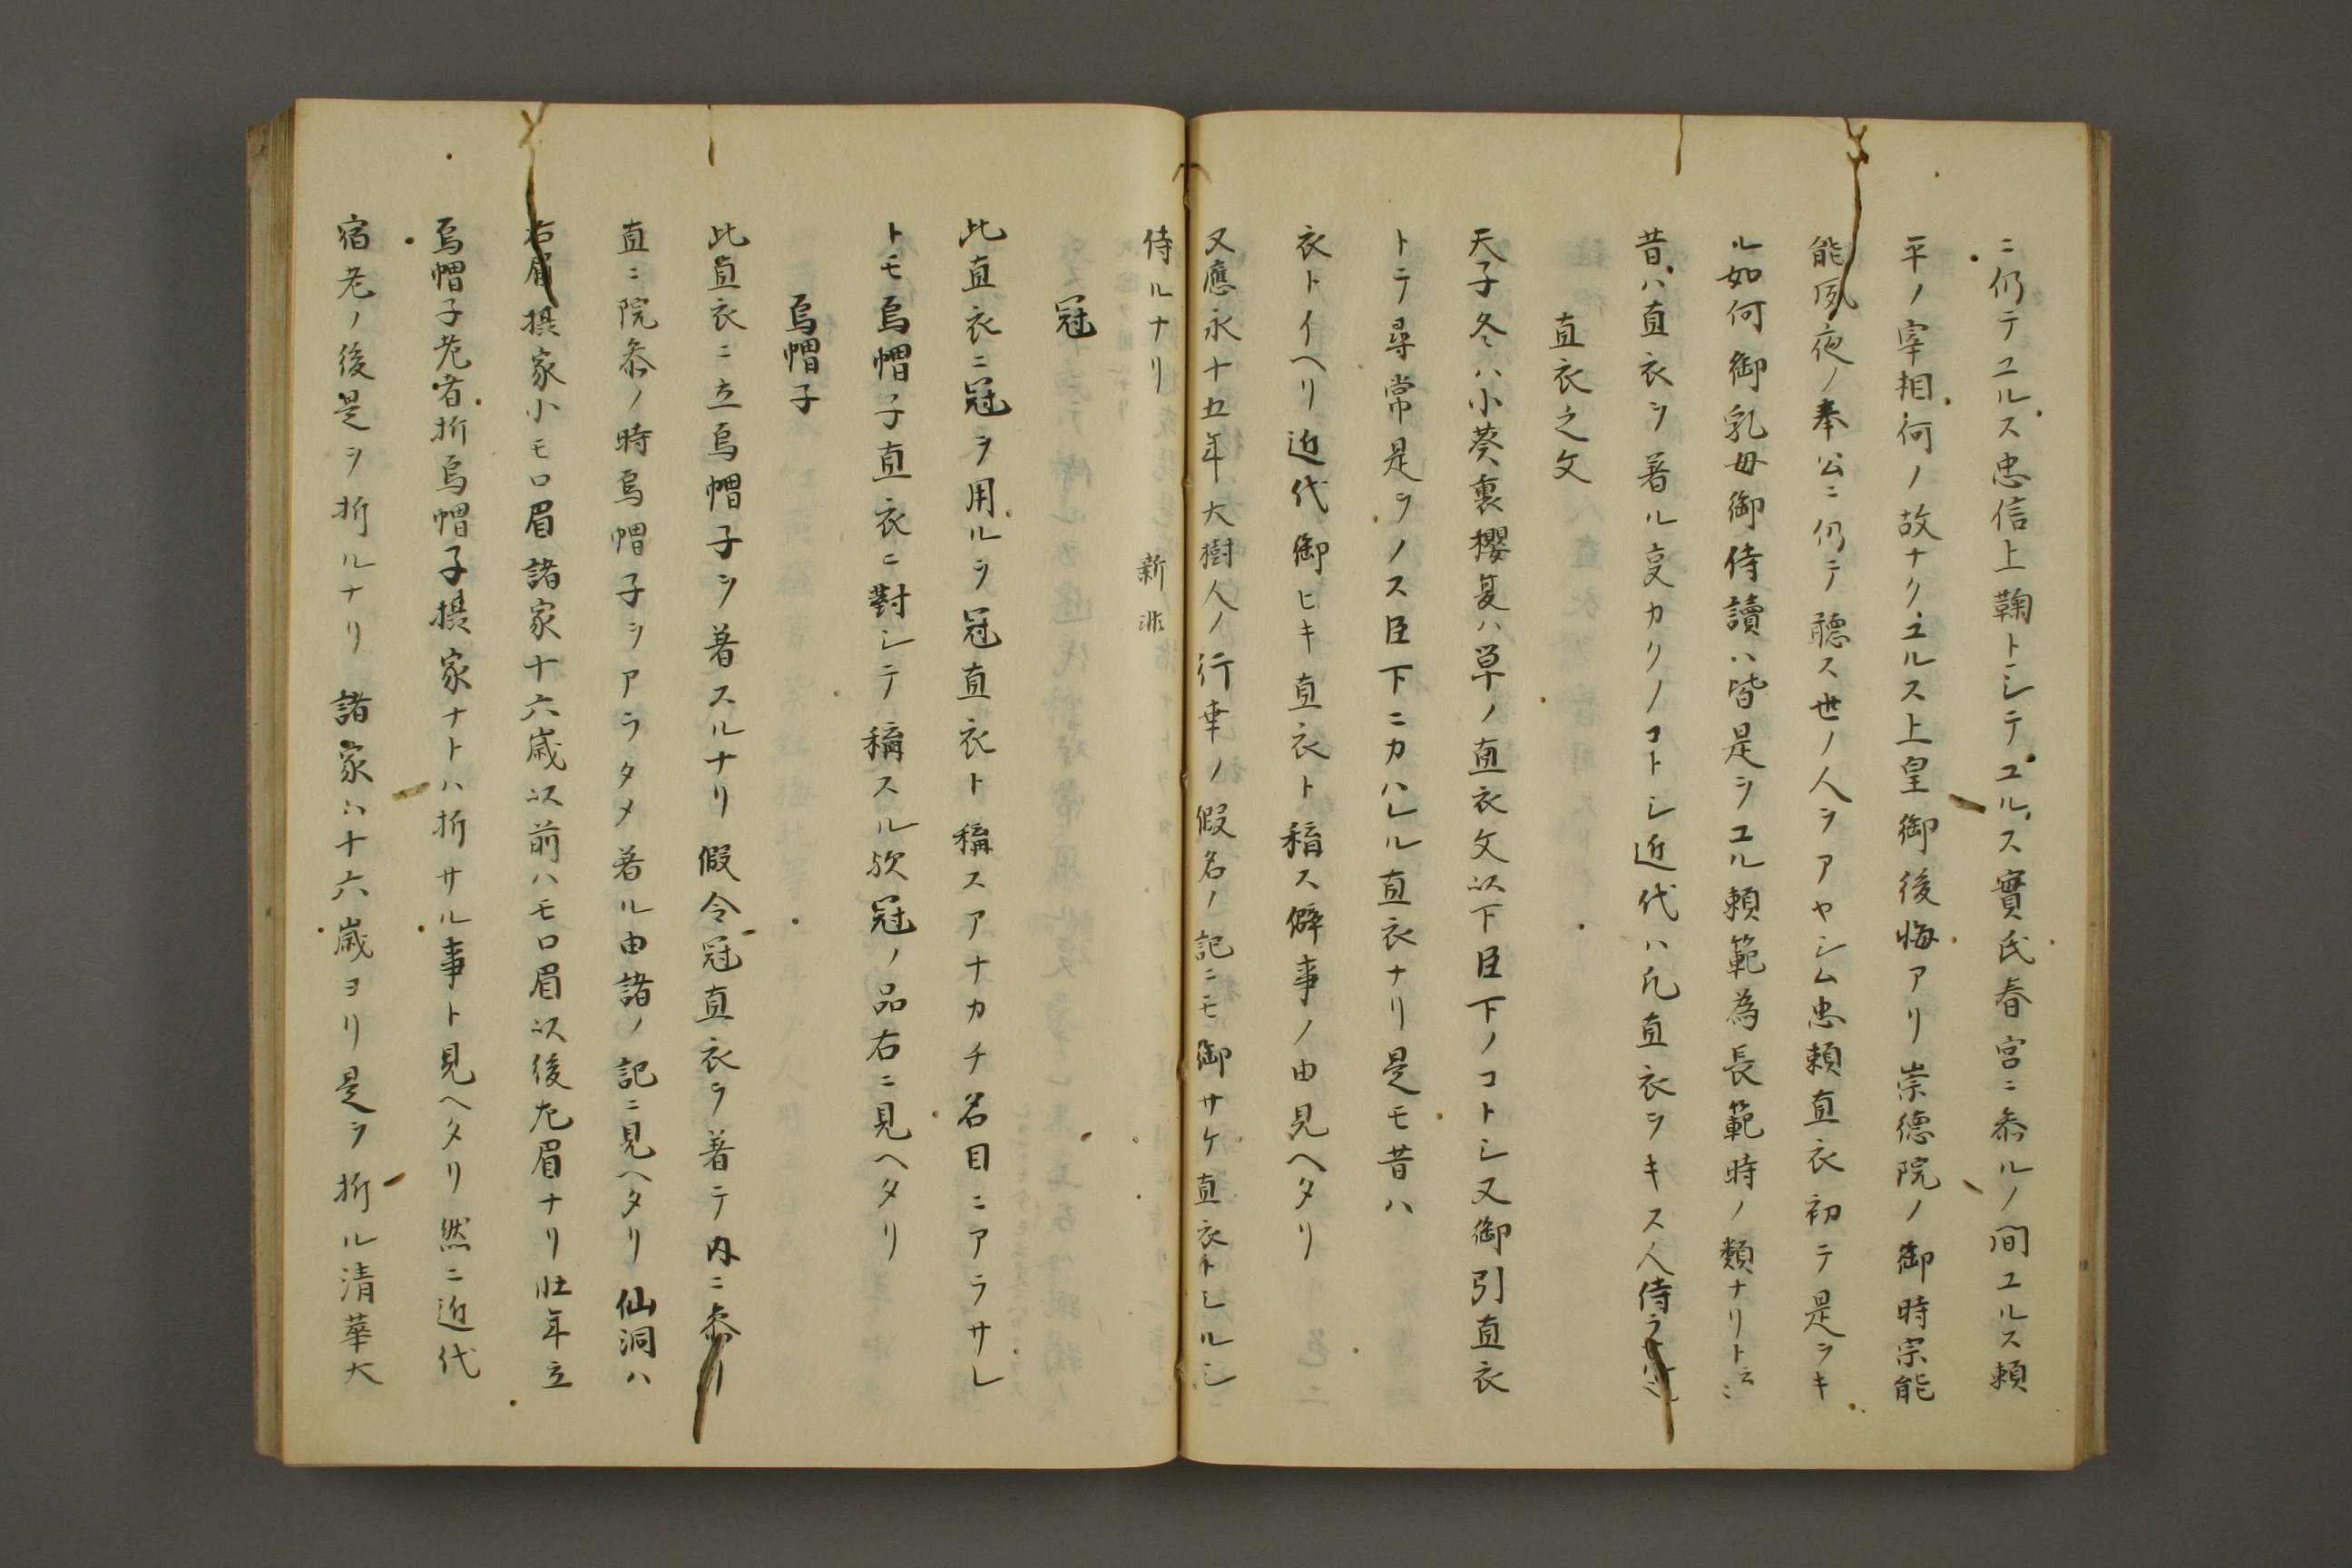 ニ仍テユルス忠信上鞠トシテユルス實氏春宮ニ参ルノ間ユルス頼
平ノ宰相何ノ故ナクユルス上皇御後悔アリ崇徳院ノ御時宗能
能夙夜ノ奉公ニ仍テ聴ス世ノ人ヲアヤシム忠頼直衣初テ是ヲキ
ル如何御乳母御侍讀ハ皆是ヲユル頼範為長範時ノ類ナリト云ニ
昔ハ直衣ヲ著ル叓カクノコトシ近代ハ凡直衣ヲキス人侍ラ
直衣之文
天子冬ハ小葵裏櫻夏ハ草ノ直衣文以下臣下ノコトシ又御引直衣
トテ尋常是ヲノス臣下ニカハレル直衣ナリ是モ昔ハ
衣トイヘリ近代御ヒキ直衣ト稱ス僻事ノ由見ヘタリ
又應永十五年大樹人ノ行幸ノ假名ノ記ニモ御サケ直衣トシルシ
侍ルナリ 新非
冠
此直衣ニ冠ヲ用ルヲ冠直衣ト稱スアナカチ名目ニアラサレ
トモ烏帽子直衣ニ對シテ稱スル欤冠ノ品右ニ見ヘタリ
烏帽子
此直衣ニ立烏帽子ヲ著スルナリ假令冠直衣ヲ著テ内ニ参リ
直ニ院参ノ時烏帽子ヲアラタメ著ル由諸ノ記ニ見ヘタリ仙洞ハ
右眉摂家小モロ眉諸家十六歳以前ハモロ眉以後左眉ナリ壮年立
烏帽子老者折烏帽子摂家ナトハ折サル事ト見ヘタリ然ニ近代
宿老ノ後是ヲ折ルナリ諸家ハ十六歳ヨリ是ヲ折ル清華大